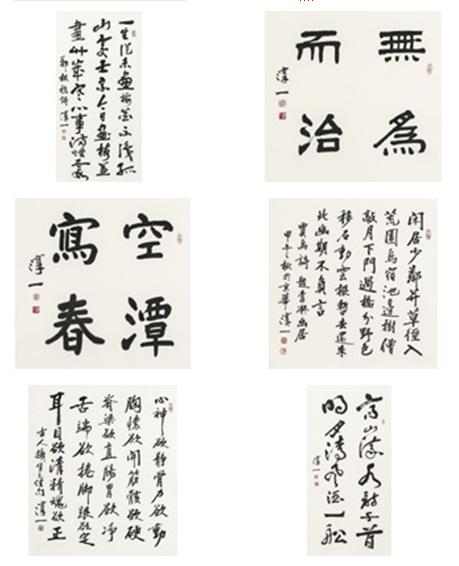 一生從未畫梅花不識孤
山處士家今日畫梅並
畫竹歲寒心事滿煙霞
鄭板橋詩 淳一
無為
而治
淳一
空潭
寫春
淳一
閑居少鄰并草徑入
荒園鳥宿池邊樹僧
敲月下門過橋分野色
移石動雲根暫去還來
此幽期不負言
賈島詩題李凝幽居
甲午之秋於京華淳一
心神欲靜骨力欲動
胸懷欲開筋骸欲硬
脊梁欲直腸胃欲淨
舌端欲捲腳跟欲定
耳目欲清精魂欲正
古人攝生佳句 淳一
高山流水詩千首
明月清風酒一船
淳一